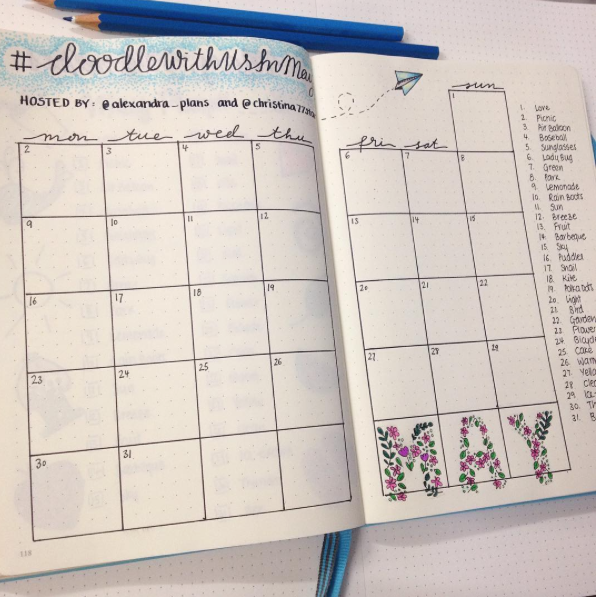 #doodlewithUsInMay
HOSTED BY: @alexandra_plans and @christina77star
mon tue wed thu
fri sat sun
1
2 3 4 5
6 7 8
9 10 11 12
13 14 15
16 17 18 19
20 21 22
23 24 25 26
27 28 29
30 31
MAY
1. Love
2. Picnic
3. Air Baloon
4. Baseball
5. Sunglasses
6. Lady Bug
7. Green
8. Park
9. Lemonade
10. Rain Boots
11. Sun
12. Breeze
13. Fruit
14. Barbeque
15. Sky
16. Puddles
17. Snail
18. Kite
19. Polkadots
20. Light
21. Bird
22. Garden
23. Flower
24. Bicycle
25. Cake
26.
27.
28
29
30.
31.
118